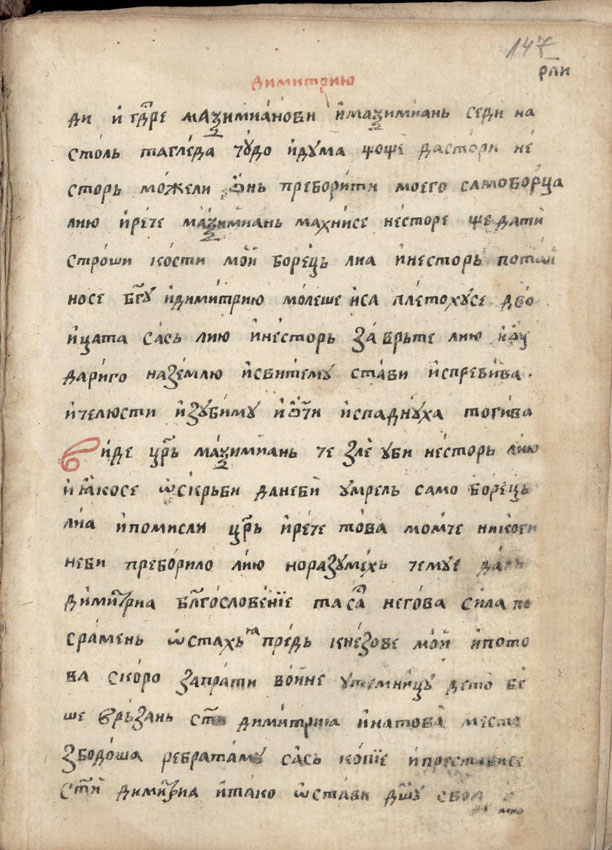 147
рл҃и
димитрїю
ди и҆ гд҃ре маѯимиꙗнови и҆маѯимиꙗнь седи на
столь тагледа чю́до и҆дума ще́ще дастори не
сторь мо́жели ѻ҆нь преборити моего самоборца
лию и҆ре́че маѯимиꙗнь махнисе не́сторе ще дати
стро́ши кости мо́й борець лиа и҆несторь
носе бг҃у и҆димитрию мо́леше и҆са пле́тохусе дво
и҆цата сась лию и҆не́сторь за́врьте лию
дариго назе́млю и҆сви́тему ста́ви и҆спреби́ва.
и҆че́люсти и҆зу́биму и҆ѻ҆́чи и҆спа́днуха тоги́ва
ви́де цр҃ь маѯимиꙗнь че зле́ уби не́сторь лию
и҆ꙗ҆косе ѡ҆скрьби да неби умрель само борець
лиа и҆помисли цр҃ь и҆ре́че това момче никоги
неби преборило лию норазуме́хь чему́е
ди́митриа блг҃ословенїе таса̀ не́гова сила по
сраме́нь ѡ҆стахь на предь кне́зове мо́й и҆пото
ва скоро за́прати во́йне у темницу дето бе
ше врь́зань ст҃ь димитриа и҆на това̀ место
збодо́ша ребратаму сась копїе и҆престависе
ст҃и димитриа и҆тако ѡ҆стави дш҃у свою